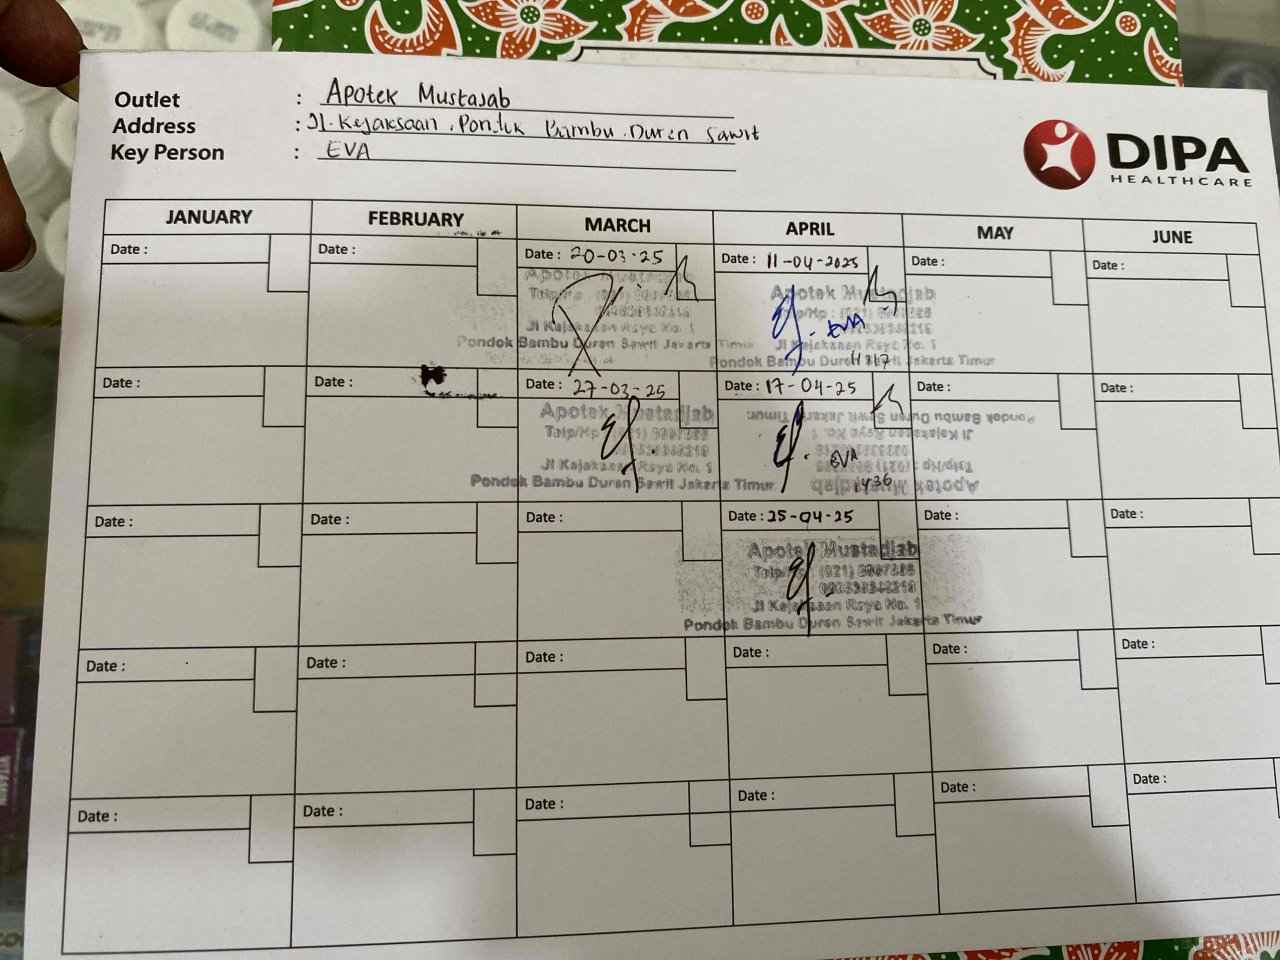 Outlet : Apotek Mustajab
Address : Jl. Kejaksaan, Pondok Bambu. Duren Sawit
Key Person : EVA
DIPA
HEALTHCARE
JANUARY FEBRUARY MARCH APRIL MAY JUNE
Date : Date : Date : 20-03-25 Date : 11-04-2025 Date : Date :
Apotek Mustadjab
Jl Kejaksaan Raya No. 1
Pondok Bambu Duren Sawit Jakarta Timur
Apotek Mustadjab
Telp/Hp :
EVA
Jl Kejaksaan Raya No. 1
Pondok Bambu Duren Sawit Jakarta Timur
Date : Date : Date : 27-03-25 Date : 17-04-25 Date : Date :
Apotek Mustadjab
Telp/Hp
Jl Kejaksaan Raya No. 1
Pondok Bambu Duren Sawit Jakarta Timur
Pondok Bambu Duren Sawit Jakarta Timur
Jl Kejaksaan Raya No. 1
Telp/Hp : (021)
Apotek Mustadjab
EVA
1436
Date : Date : Date : Date : 25-04-25 Date : Date :
Apotek Mustadjab
Telp/Hp : (021)
Jl Kejaksaan Raya No. 1
Pondok Bambu Duren Sawit Jakarta Timur
Date : Date : Date : Date : Date : Date :
Date : Date : Date : Date : Date : Date :